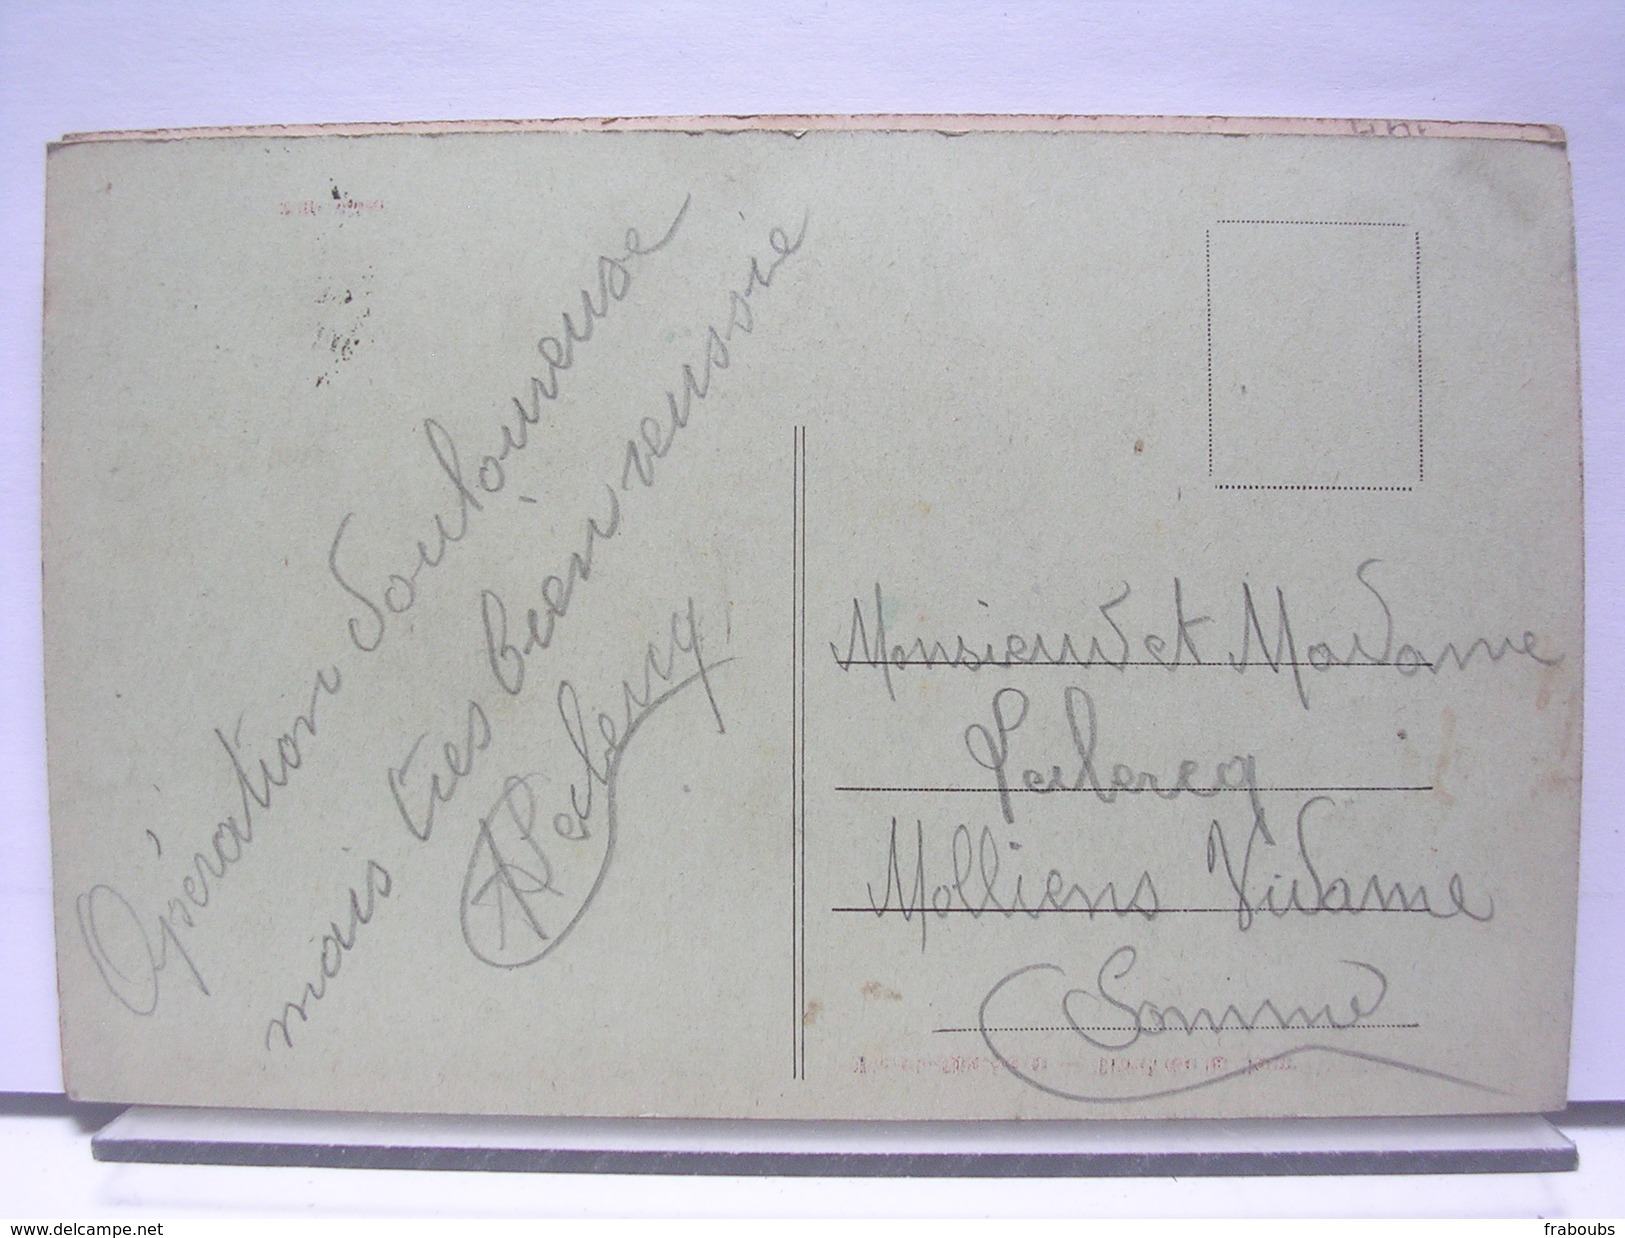 Opération douloureuse
mais très bien reussie
Leclercq
Monsieur et Madame
Leclercq
Molliens Vidame
Somme
www.delcampe.net
fraboubs